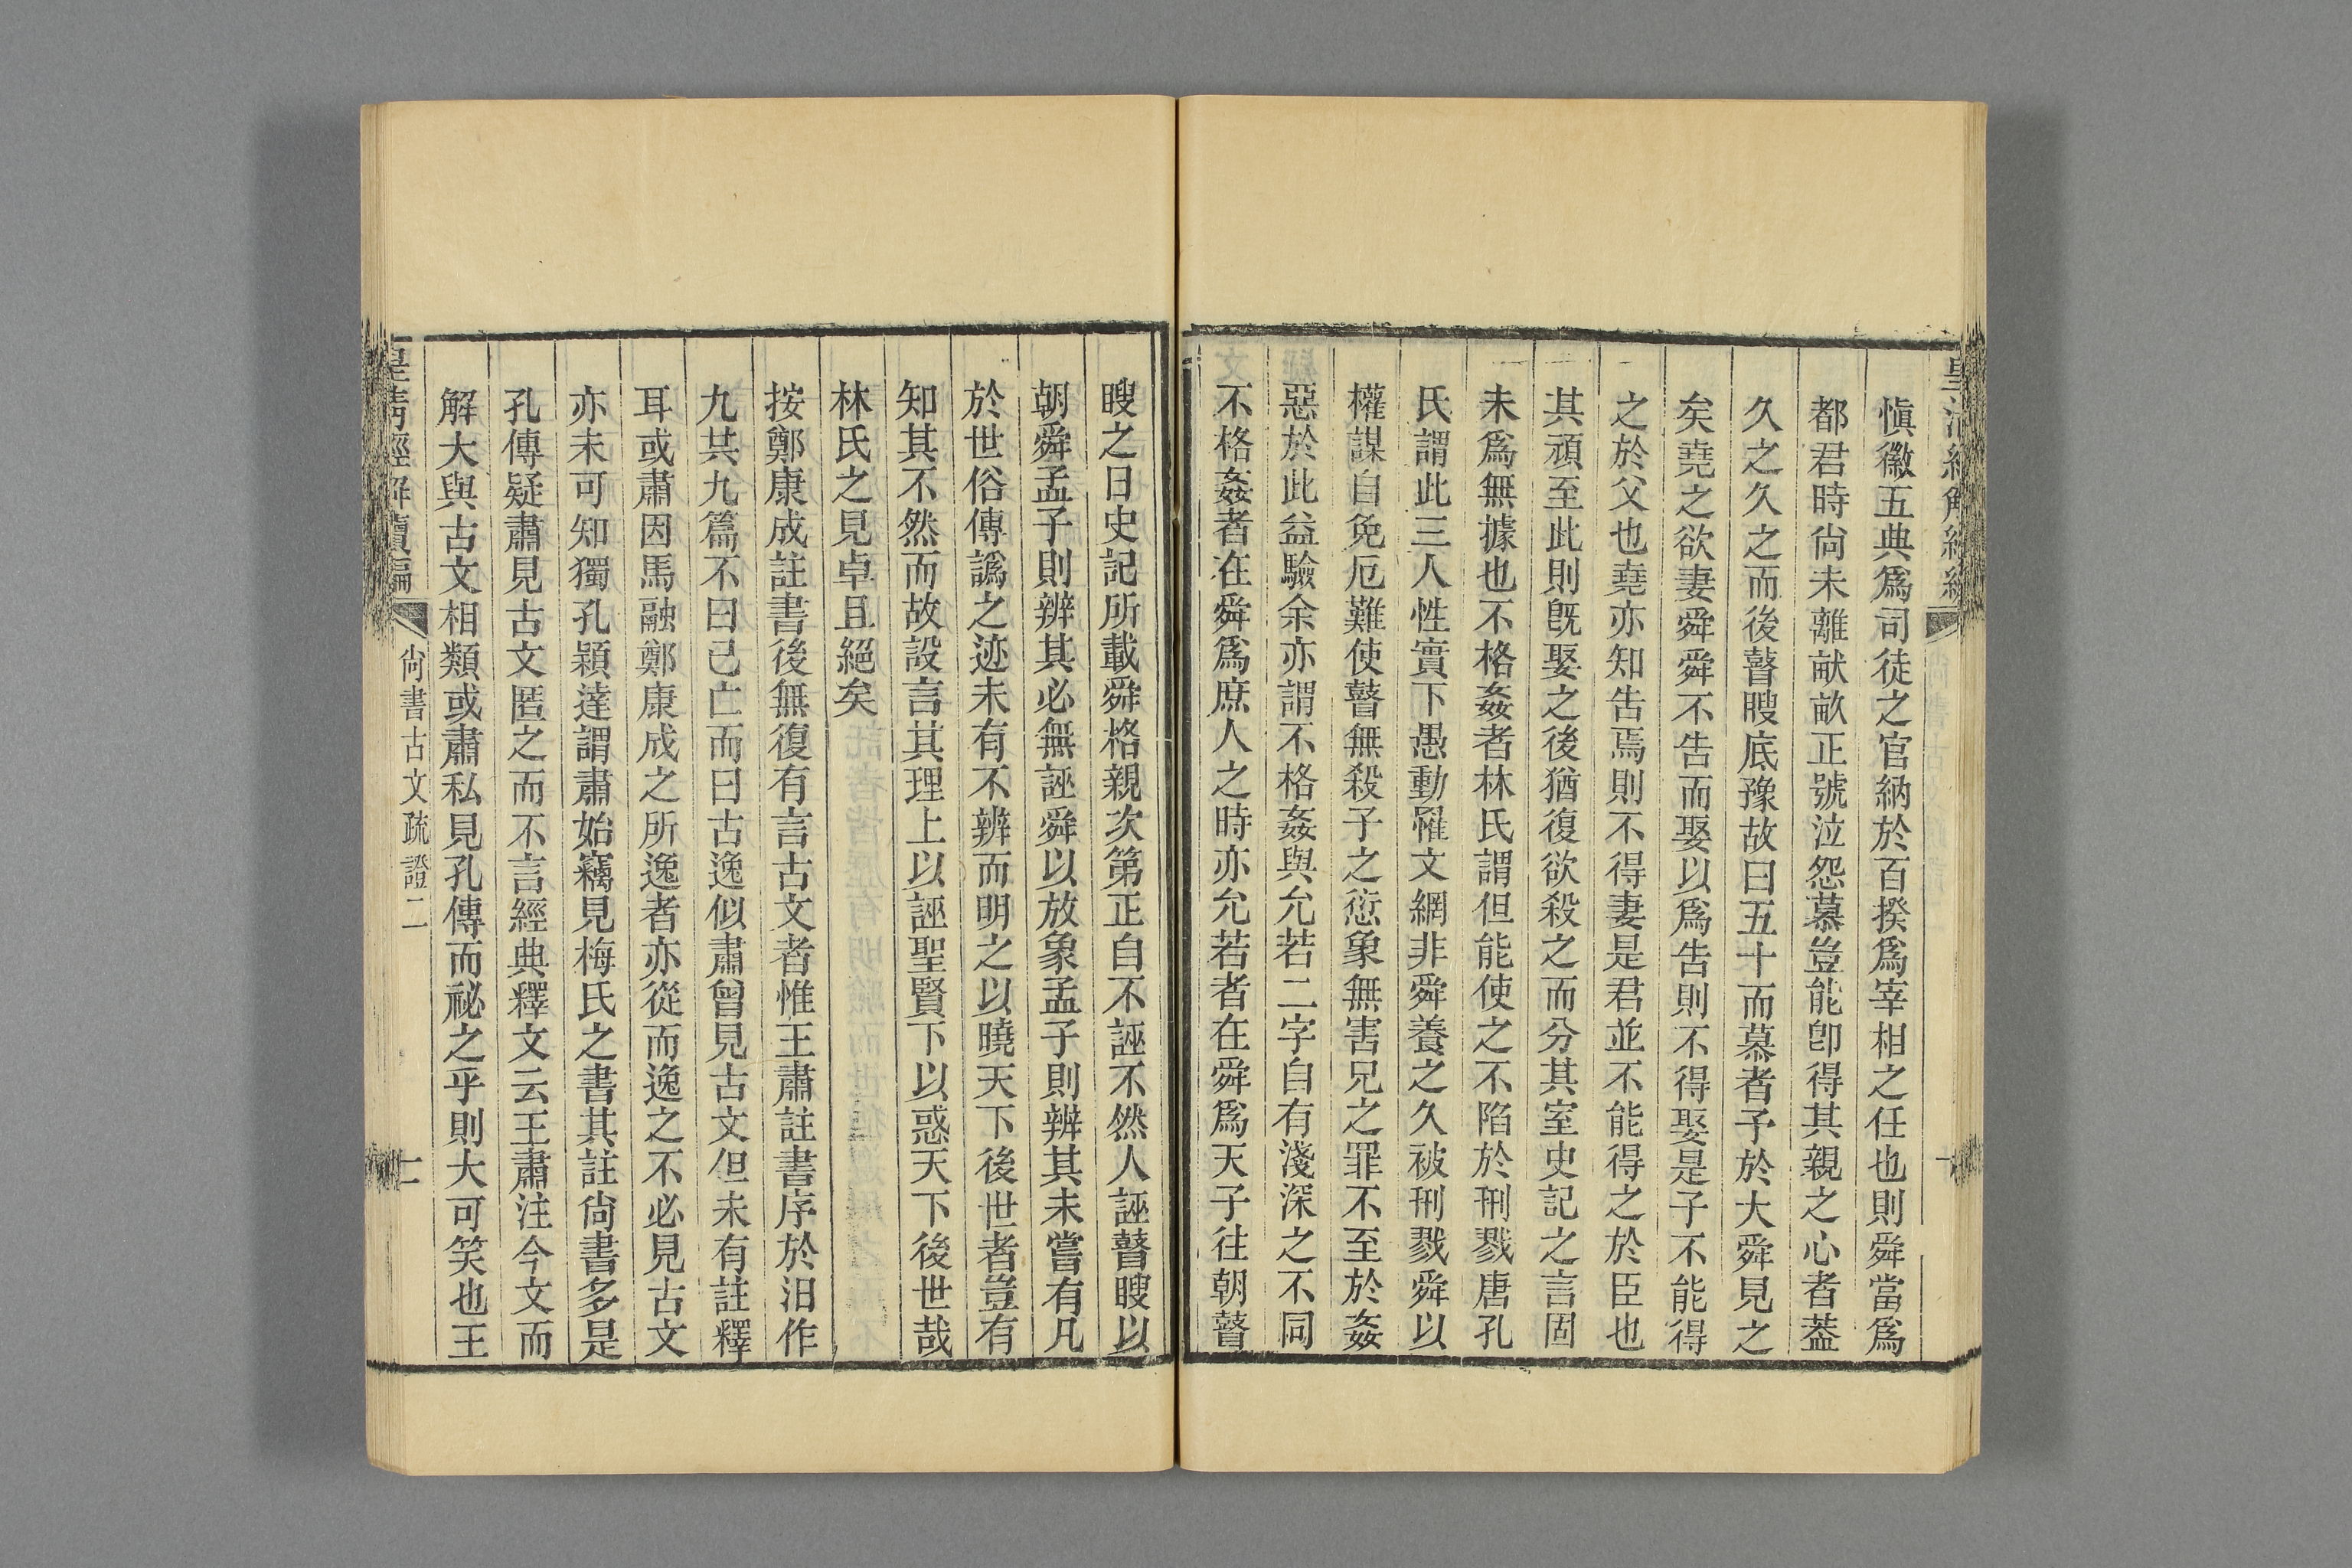 愼徽五典爲司徒之官納於百揆爲宰相之任也則舜當爲
都君時尙未離畎畝正號泣怨慕豈能卽得其親之心者葢
久之久之而後瞽瞍底豫故曰五十而慕者予於大舜見之
矣堯之欲妻舜舜不告而娶以爲告則不得娶是子不能得
之於父也堯亦知告焉則不得妻是君並不能得之於臣也
其頑至此則旣娶之後猶復欲殺之而分其室史記之言固
未爲無據也不格姦者林氏謂但能使之不陷於刑戮唐孔
氏謂此三人性實下愚動罹文網非舜養之久被刑戮舜以
權謀自免厄難使瞽無殺子之愆象無害兄之罪不至於姦
惡於此益驗余亦謂不格姦與允若二字自有淺深之不同
不格姦者在舜爲庶人之時亦允若者在舜爲天子往朝瞽
瞍之日史記所載舜格親次第正自不誣不然人誣瞽瞍以
朝舜孟子則辨其必無誣舜以放象孟子則辨其未嘗有凡
於世俗傳譌之迹未有不辨而明之以曉天下後世者豈有
知其不然而故設言其理上以誣聖賢下以惑天下後世哉
林氏之見卓且絕矣
按鄭康成註書後無復有言古文者惟王肅註書序於汨作
九共九篇不曰己亡而曰古逸似肅曾見古文但未有註釋
耳或肅因馬融鄭康成之所逸者亦從而逸之不必見古文
亦未可知獨孔穎達謂肅始竊見梅氏之書其註尙書多是
孔傳疑肅見古文匿之而不言經典釋文云王肅注今文而
解大與古文相類或肅私見孔傳而祕之乎則大可笑也王
皇清經解續編
尙書古文疏證二